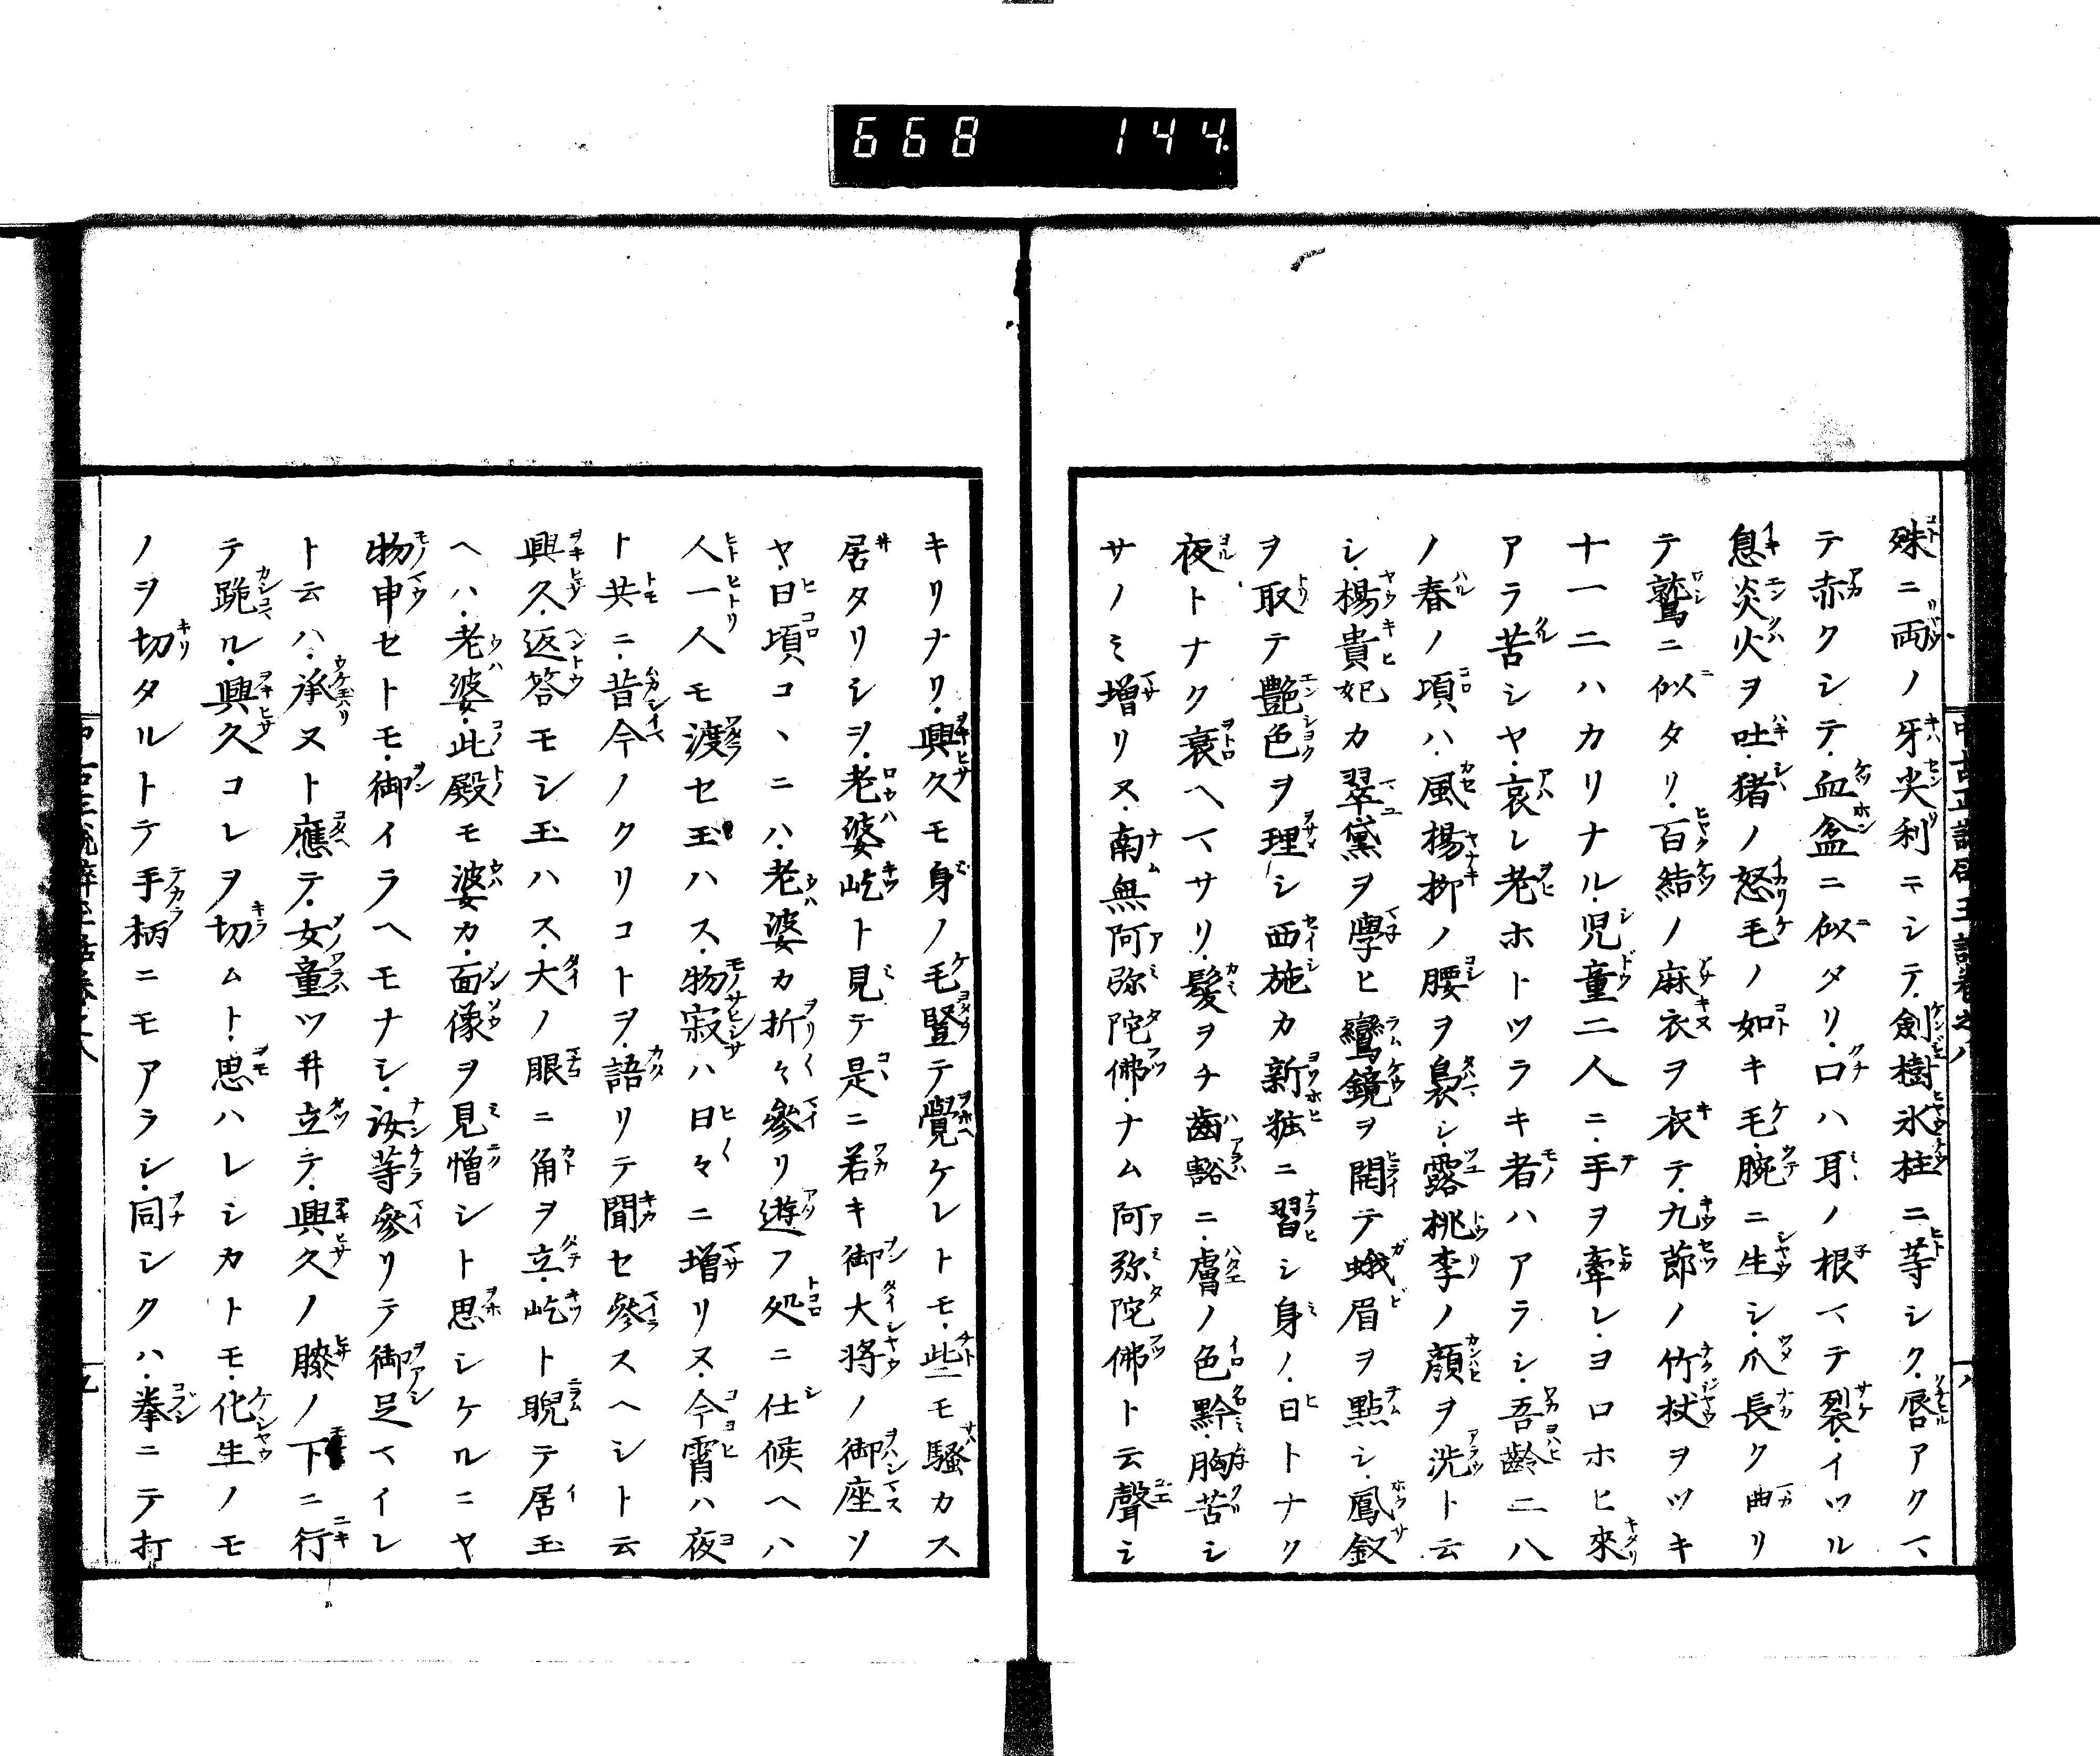 668 144
殊ニ両ノ牙尖利ニシテ劍樹氷柱ニ等シク唇アクマ
テ赤クシテ血盆ニ似タリ口ハ耳ノ根マテ裂イツル
息炎火ヲ吐猪ノ怒毛ノ如キ毛腕ニ生シ爪長ク曲リ
テ鷲ニ似タリ百結ノ麻衣ヲ衣テ九節ノ竹杖ヲツキ
十一二ハカリナル児童二人ニ手ヲ牽レヨロホヒ來
アラ苦シヤ哀レ老ホトツラキ者ハアラシ吾齡二八
ノ春ノ項ハ風楊柳ノ腰ヲ裊シ露桃李ノ顔ヲ洗ト云
シ楊貴妃カ翠黛ヲ學ヒ鸞鏡ヲ開テ蛾眉ヲ點シ鳳釵
ヲ取テ艶色ヲ理シ西施カ新粧ニ習シ身ノ日トナク
夜トナク衰ヘマサリ髮ヲチ齒豁ニ膚ノ色黔胸苦シ
サノミ増リヌ南無阿弥陀佛ナム阿弥陀佛ト云聲ミ
キリナリ興久モ身ノ毛竪テ覺ケレトモ些モ騷カス
居タリシヲ老婆屹ト見テ是ニ若キ御大将ノ御座ソ
ヤ日項コヽニハ老婆カ折々參リ遊フ処ニ仕候ヘハ
人一人モ渡セ玉ハス物寂ハ日々ニ増リヌ今宵ハ夜
ト共ニ昔今ノクリコトヲ語リテ聞セ參スヘシト云
興久返答モシ玉ハス大ノ眼ニ角ヲ立屹ト睨テ居玉
ヘハ老婆此殿モ婆カ面像ヲ見憎シト思シケルニヤ
物申セトモ御イラヘモナシ汝等參リテ御足マイレ
ト云ハ承ヌト應テ女童ツ井立テ興久ノ膝ノ下ニ行
テ跪ル興久コレヲ切ムト思ハレシカトモ化生ノモ
ノヲ切タルトテ手柄ニモアラシ同シクハ拳ニテ打